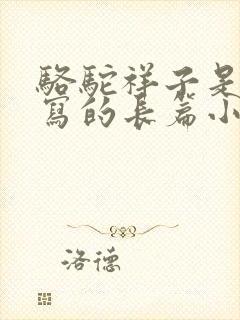 駱駝祥子是
寫的長篇小
洛德